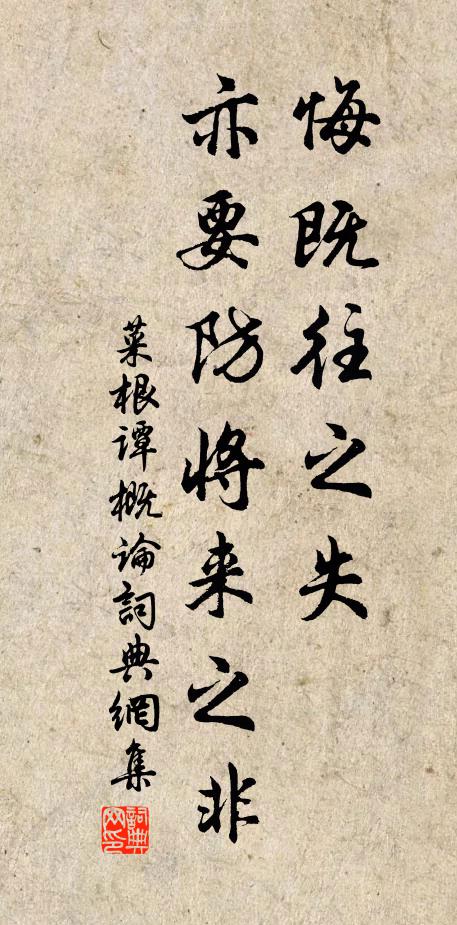 悔既往之失
亦要防将来之非
菜根谭概論詞典網集
詞典网印